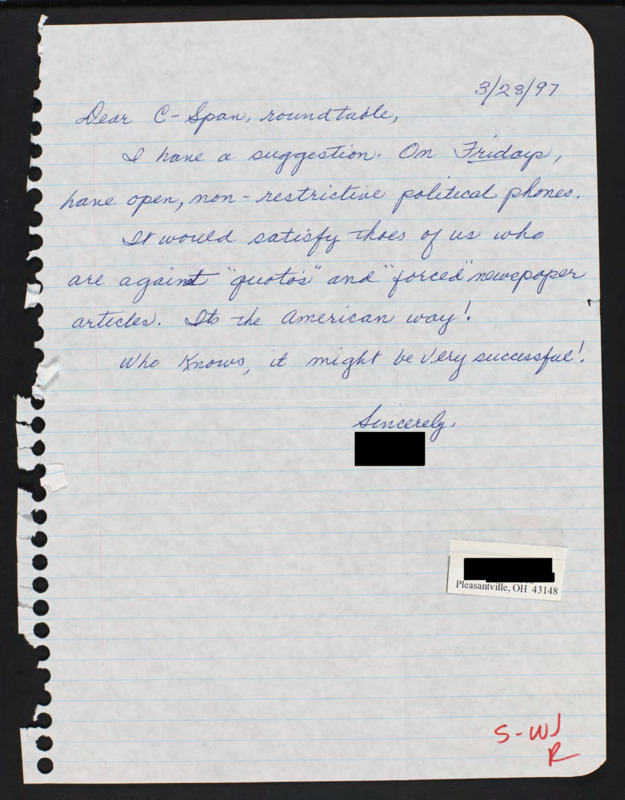 3/28/97
Dear C-Span, roundtable,
I have a suggestion. On Fridays,
have open, non-restrictive political phones.
It would satisfy thoes of us who
are against "quotos" and "forced" newspaper
articles. Its the American way!
Who Knows, it might be very successful!
Sincerely,
Pleasantville, OH 43148
S-WJ
R